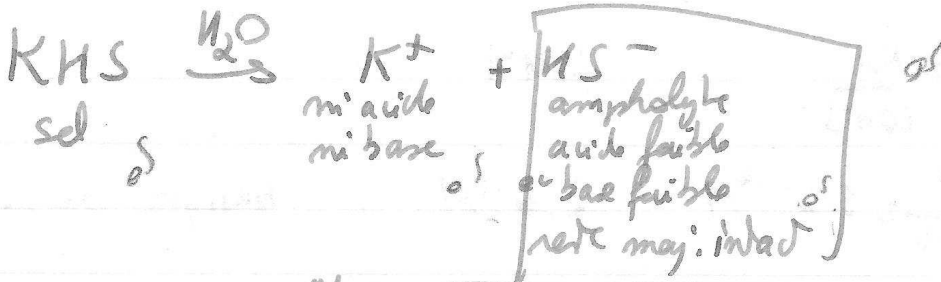 KHS H2O→ K+ + HS−
sel ni acide ampholyte
ni base acide faible
ou base faible
reste maj. intact